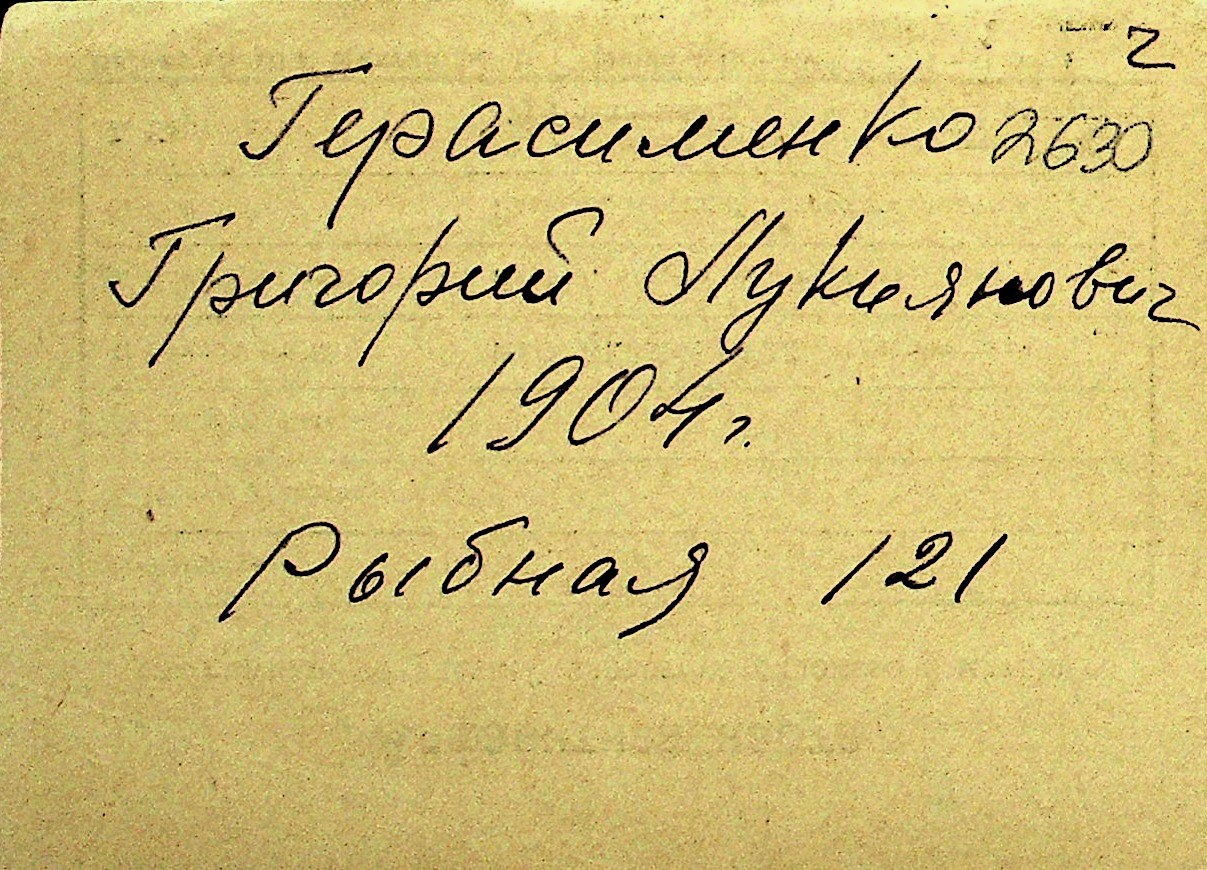 г
Герасименко 2630
Григорий Лукиянович
1904г.
Рыбная 121